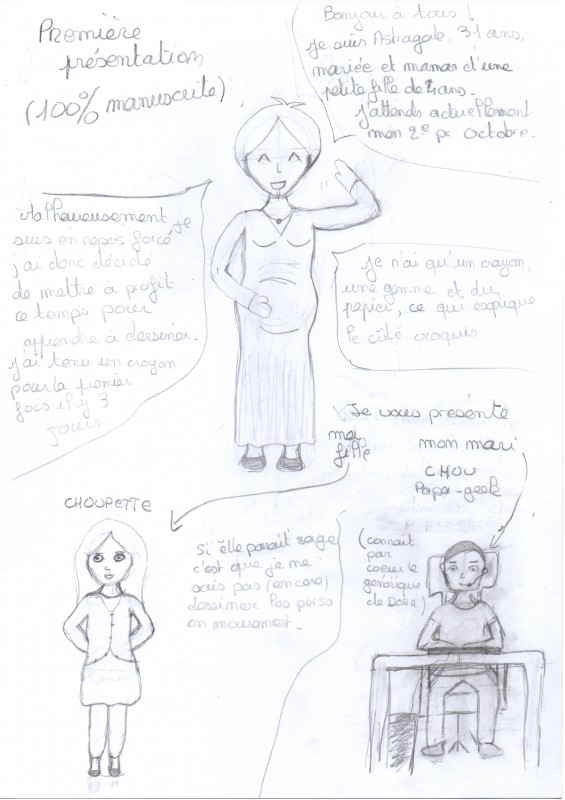 Première
présentation
(100% manuscrite)
Bonjour à tous !
Je suis Astragale, 31 ans,
mariée et maman d'une
petite fille de 4 ans.
J'attends actuellement
mon 2e pr octobre.
Malheureusement je
suis en repos forcé
j'ai donc décidé
de mettre à profit
ce temps pour
apprendre à dessiner.
J'ai tenu un crayon
pour la premier
fois il y 3
jours
Je n'ai qu'un crayon,
une gomme et du
papier, ce qui explique
le côté croquis
Je vous présente
ma
fille
mon mari
CHOU
Papa-geek
CHOUPETTE
Si elle parait sage
c'est que je ne
sais pas (encore)
dessiner les perso
en mouvement.
(connait
par
coeur le
générique
de Dora)